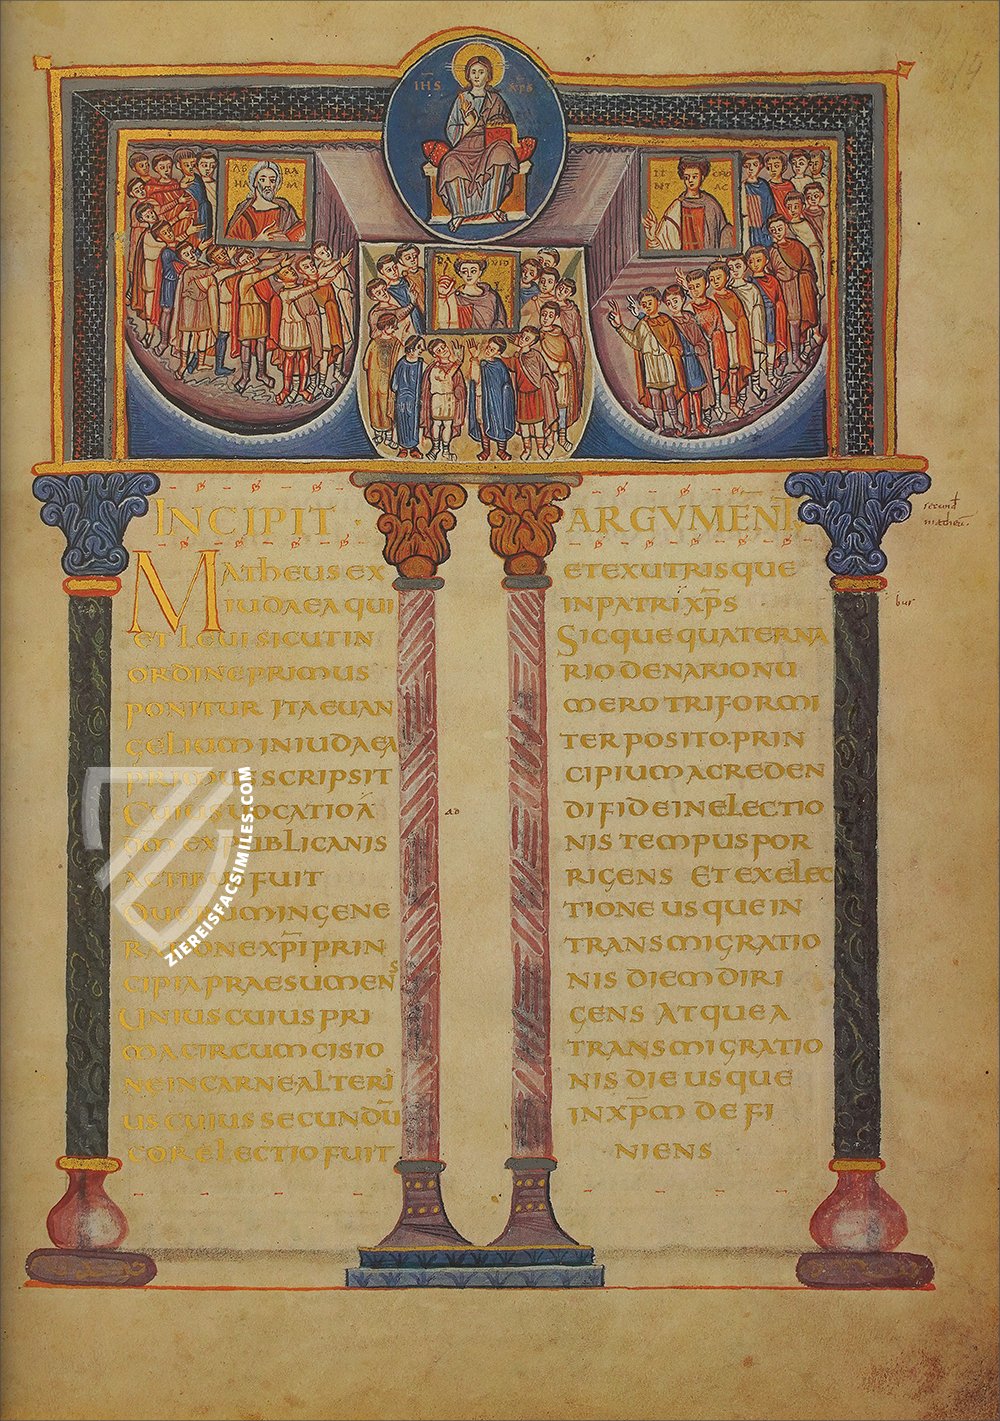 IHS XPS
ABRAHAM
DAVID
INCIPIT · ARGVMENT
MATHEUS EX
IUDAEA QUI
ET LEUI SICUT IN
ORDINE PRIMUS
PONITUR ITA EUAN
GELIUM IN IUDAEA
PRIMUS SCRIPSIT
CUIUS UOCATIO A
DNM EX PUBLICANIS
ACTIBUS FUIT
DUORUM IN GENE
RATIONE XPI PRIN
CIPIA PRAESUMENS
UNIUS CUIUS PRI
MA CIRCUMCISIO
NE IN CARNE ALTERI
US CUIUS SECUNDU
COR ELECTIO FUIT
ET EX UTRISQUE
IN PATRI XPS
SICQUE QUATERNA
RIO DENARIO NU
MERO TRIFORMI
TER POSITO. PRIN
CIPIUM A CREDEN
DI FIDE IN ELECTIO
NIS TEMPUS POR
RIGENS ET EX ELEC
TIONE USQUE IN
TRANSMIGRATIO
NIS DIEM DIRI
GENS ATQUE A
TRANSMIGRATIO
NIS DIE USQUE
IN XPM DEFI
NIENS
ad
ZIEREISFACSIMILES.COM